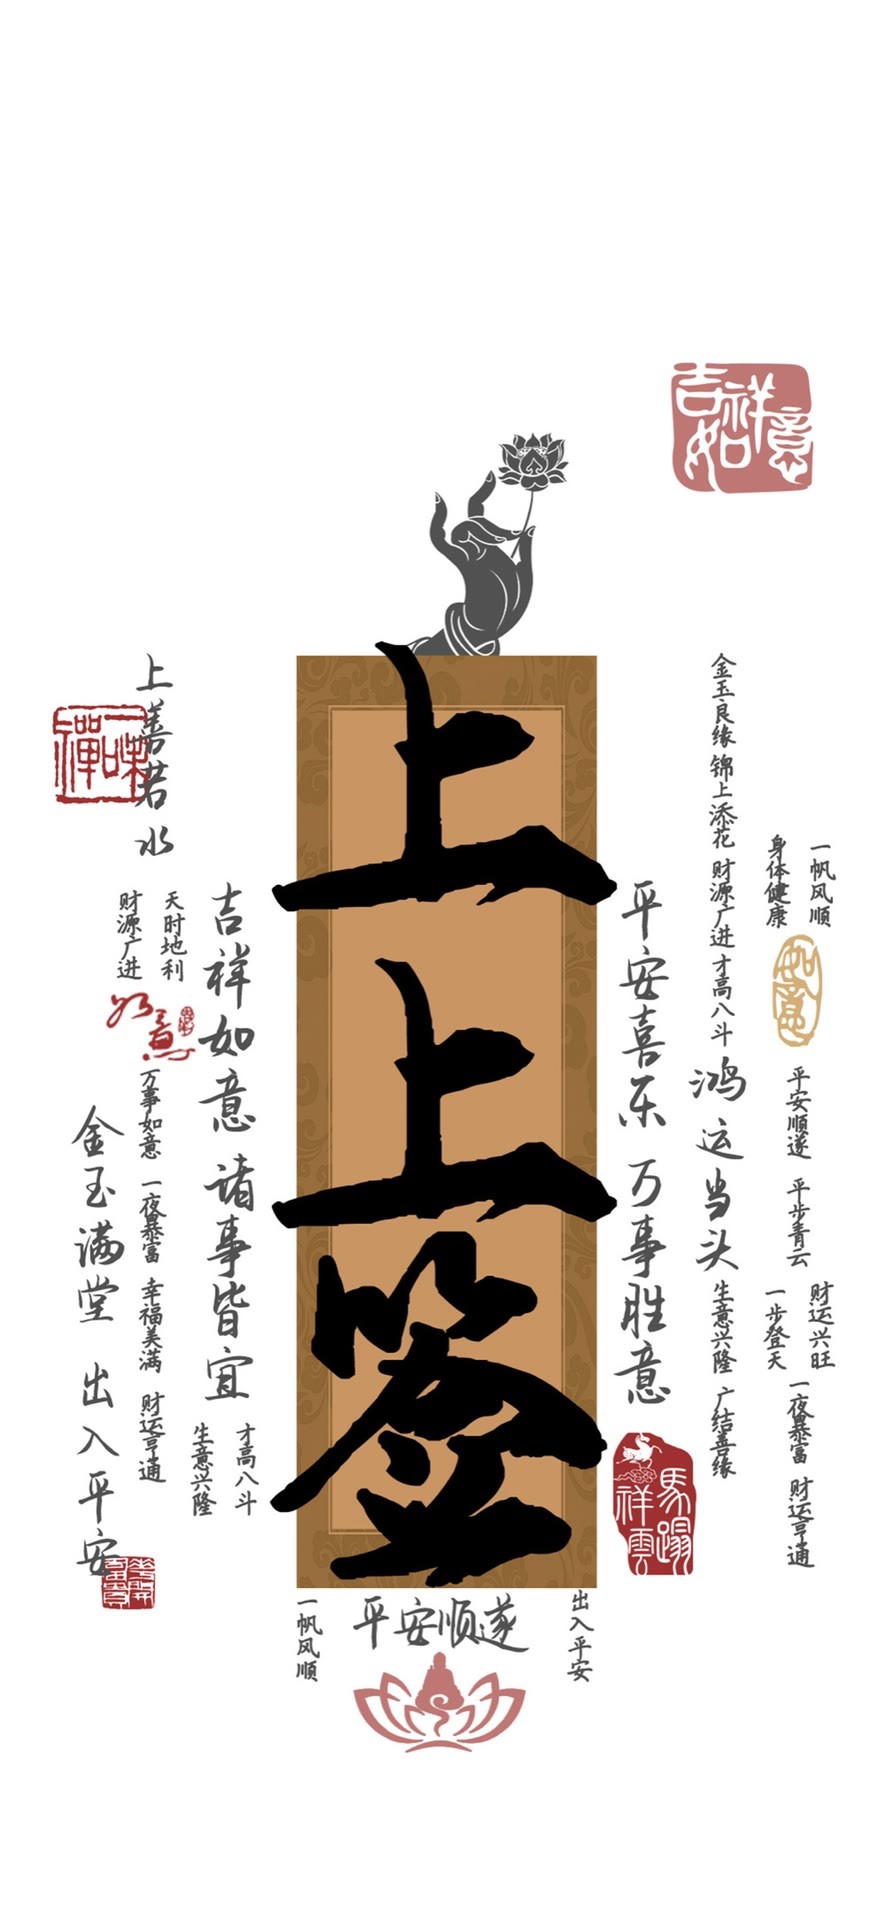 吉祥如意
上上签
上善若水
一味禅
财源广进
天时地利
吉祥如意 诸事皆宜
如意
万事如意 一夜暴富 幸福美满 财运亨通
金玉满堂 出入平安
生意兴隆
才高八斗
花开富贵
平安喜乐 万事胜意
金玉良缘 锦上添花 财源广进 才高八斗
鸿运当头
生意兴隆 广结善缘
身体健康
一帆风顺
如意
平安顺遂 平步青云
一步登天
财运兴旺
一夜暴富 财运亨通
馬蹋祥雲
一帆风顺
平安顺遂
出入平安